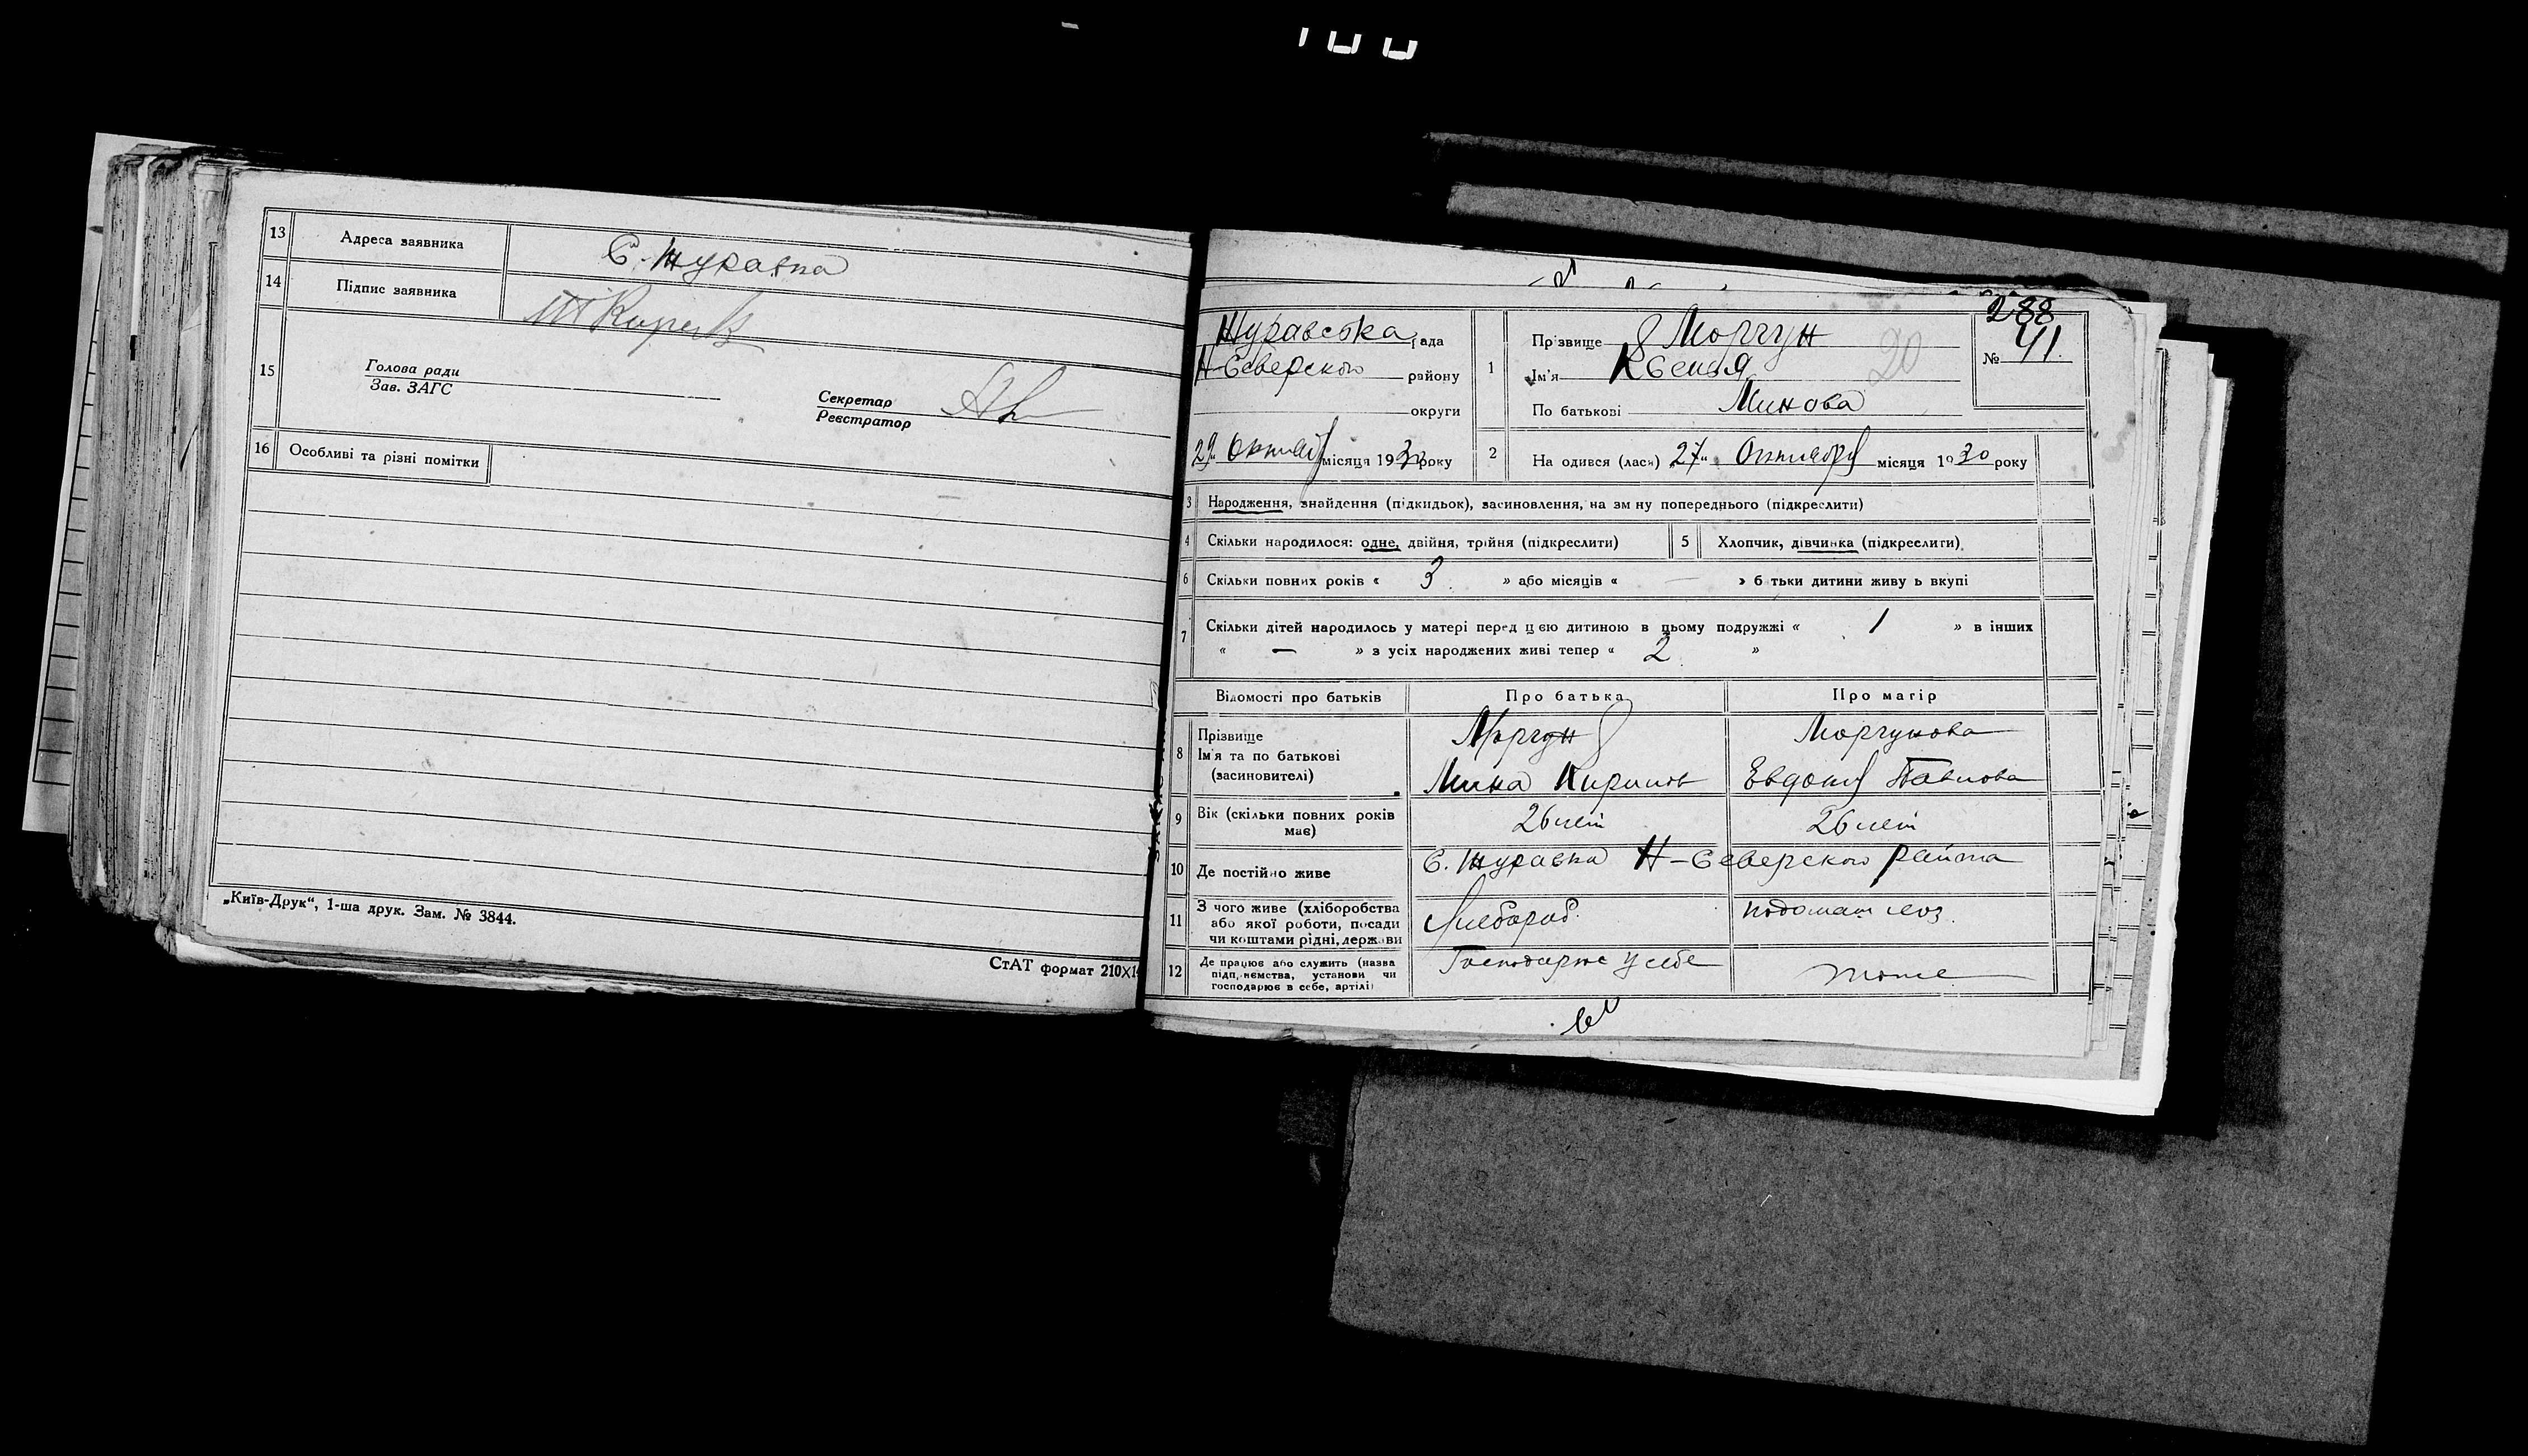 13 Адреса заявника С. Журавка
14 Підпис заявника
15 Голова ради
Зав. ЗАГС
Секретар
Реєстратор
16 Особливі та різні помітки
„Київ-Друк“, 1-ша друк. Зам. № 3844.
СтАТ формат 210X14
288
Журавська рада
Н-Северского району
округи
29 Октяб місяця 1930 року
1 Прізвище Моргун
Ім'я Ксенья
По батькові Минова
20
№ 41.
2 На одився (лася) 27 Октября місяця 1930 року
3 Народження, знайдення (підкидьок), засиновлення, на зм ну попереднього (підкреслити)
4 Скільки народилося: одне, двійня, трійня (підкреслити) 5 Хлопчик, дівчинка (підкреслити)
6 Скільки повних років « 3 » або місяців « — » б тьки дитини живу ь вкупі
7 Скільки дітей народилось у матері перед цією дитиною в цьому подружжі « 1 » в інших
« — » з усіх народжених живі тепер « 2 »
Відомості про батьків Про батька Про матір
8 Прізвище
Ім'я та по батькові
(засиновителі)
Моргун
Мина Кирилов
Моргунова
Евдокия Павлова
9 Вік (скільки повних років має) 26 лет 26 лет
10 Де постійно живе С. Журавка Н-Северского района
11 З чого живе (хліборобства
або якої роботи, посади
чи коштами рідні, держави
Хлебороб.
подомаш хоз.
12 Де працює або служить (назва
підприємства, установи чи
господарює в себе, артілі)
Господарює у себе
тоже